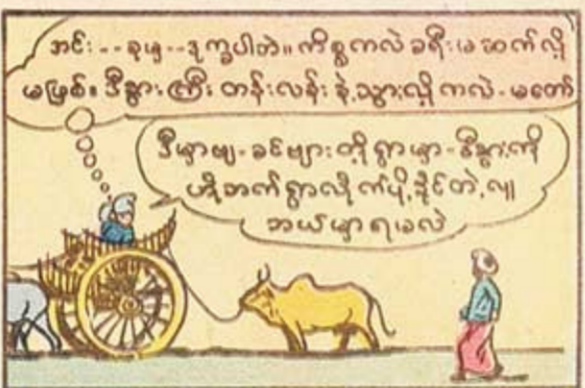 အင်း--ခုမှ--ဒုက္ခပါဘဲ။ ကိစ္စကလဲ ခရီးမဆက်လို့
မဖြစ်။ ဒီနွားကြီး တန်းလန်းနဲ့သွားလို့ကလဲ-မတော်
ဒီမှာဗျ-ခင်ဗျားတို့ရွာမှာ-ဒီနွားကို
ဟိုဘက်ရွာလိုက်ပို့နိုင်တဲ့လူ
ဘယ်မှာရမလဲ